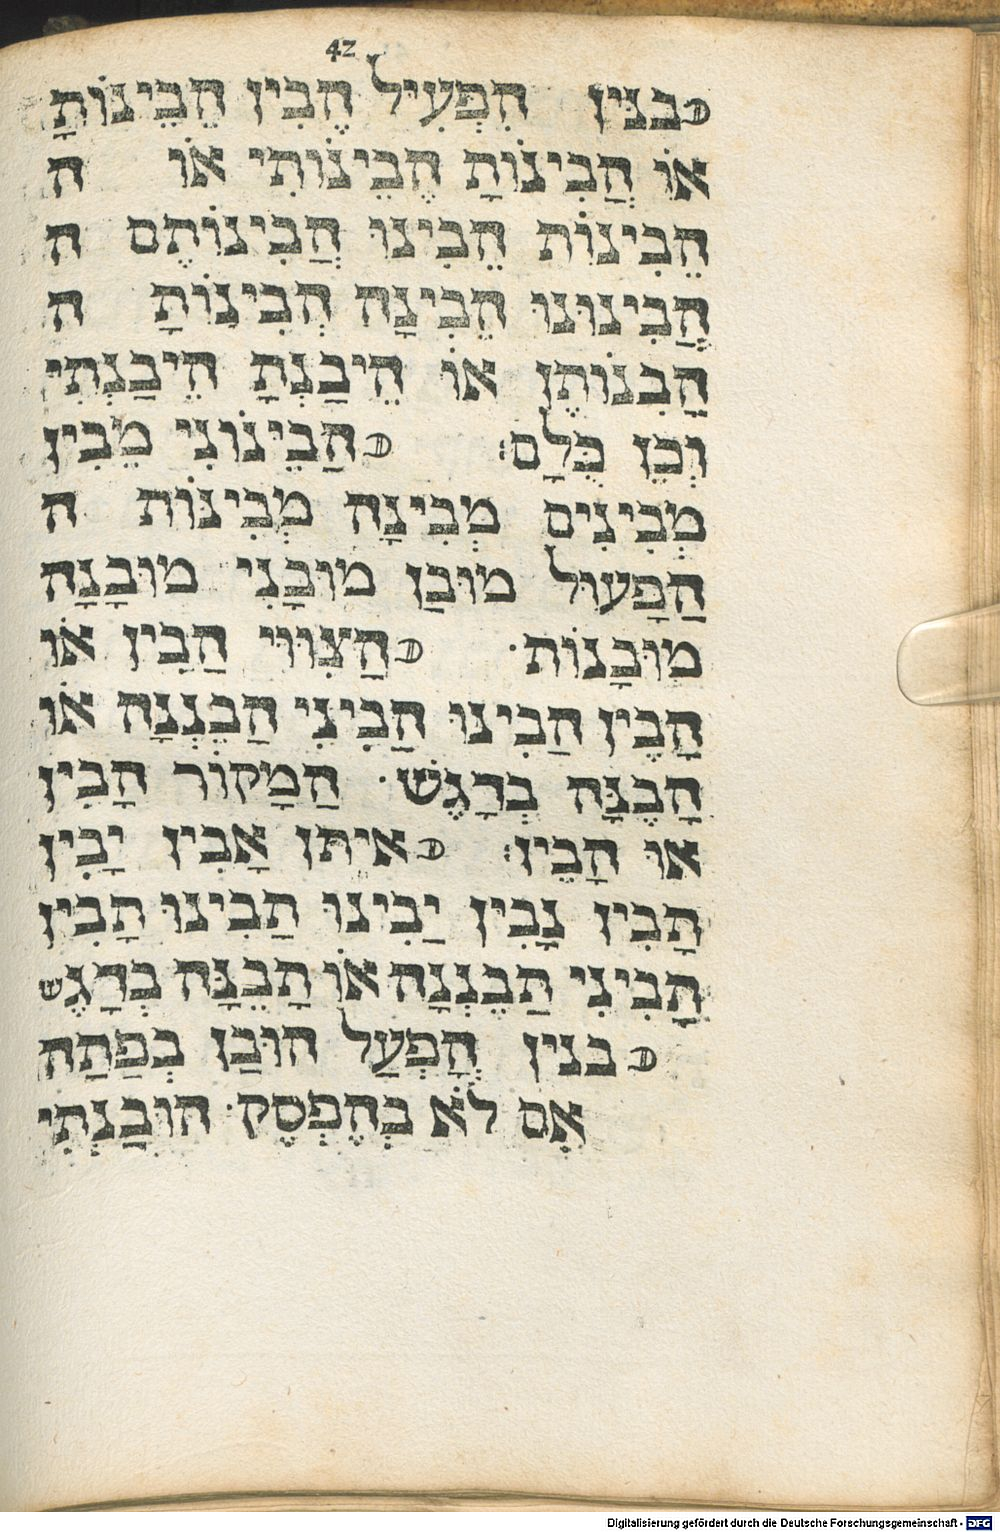 42
בנין הִפְעִיל הֵבִין הֲבִינוֹתָ
אוֹ הֲבִינוֹתָ הֲבִינוֹתִי אוֹ ה
הֲבִינוֹת הֵבִינוּ הֲבִינוֹתֶם ה
הֲבִינוּנוּ הֵבִינָה הֲבִינוֹתָ ה
הֲבִנוֹתֶן אוֹ הֵיבַנְתָ הֵיבַנְתִי
וְכֵן כֻּלָם: הַבֵּינוֹנִי מֵבִין
מְבִינִים מְבִינָה מְבִינוֹת ה
הַפָּעוּל מוּבָן מוּבָנִי מוּבָנָה
מוּבָנוֹת· הַצִוּוּי הַבִין אוֹ
הָבֵין הַבִינוּ הַבִינִי הַבֵנְנָה אוֹ
הָבֵנָּה בְּדָגֵשׁ· הַמָקוֹר הָבִין
אוֹ הָבֵין: איתן אָבִין יָבִין
תָבִין נָבִין יַבִינוּ תַבִינוּ תָבִין
תַבִינִי תַבֵנְנָה אוֹ תָבֵנָּה בְּדָגֵשׁ
בנין הָפְעַל הוּבַן בְּפַתַח
אִם לֹא בְּהֶפְסֵק· הוּבַנְתִי
Digitalisierung gefördert durch die Deutsche Forschungsgemeinschaft - DFG